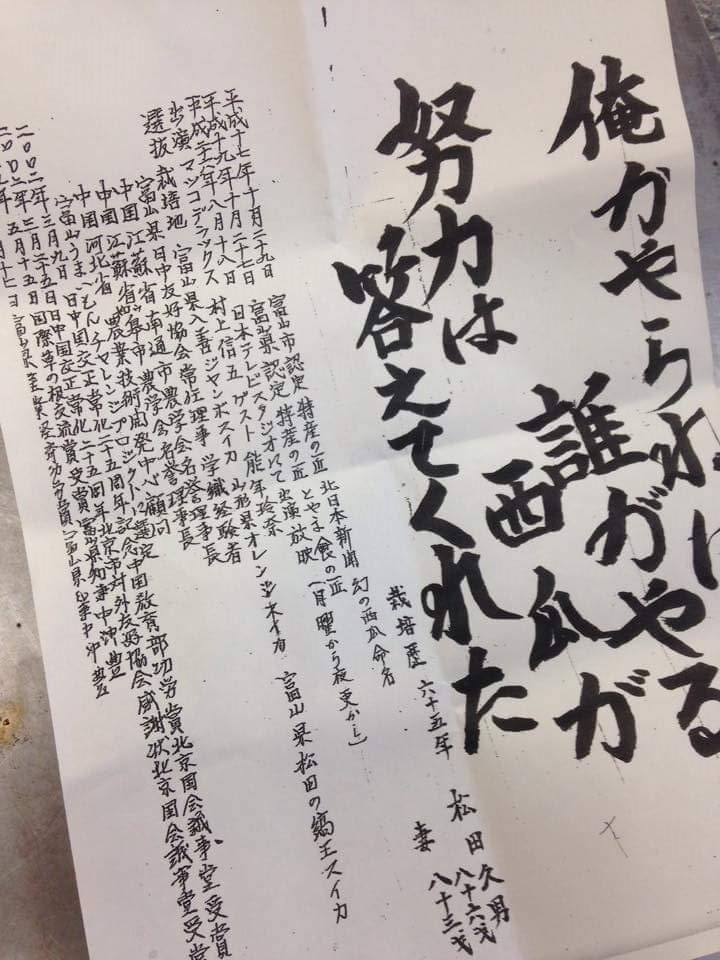 俺がやらねば
誰がやる
西瓜が
努力は
答えてくれた
栽培歴 六十五年 松田久男 八十六才
妻 八十三才
平成十七年十月二十九日 富山市認定 特産の匠 北日本新聞 幻の西瓜命名
平成十九年十月二十七日 富山県認定 特産の匠 とやま食の匠
平成二十年八月十八日 日本テレビスタジオにて 出演放映(月曜から夜更かし)
出演 マツコデラックス 村上信五 ゲスト 能年玲奈
選抜 栽培地 富山県入善ジャンボスイカ 山形県オレンジスイカ 富山県松田の縞王スイカ
富山県日中友好協会常任理事 学識経験者
中国 江蘇省南通市農学会名誉理事長
中国 江蘇省 市農学会名誉理事長
中国 河北省 農業技術開発中心顧問
富山うまいもんチャレンジプロジェクトに選定
三月九日 日中国交正常化二十五周年記念中国教育部功労賞北京国会議事堂受賞
二〇〇二年三月二十五日日中国交正常化二十五周年北京市対外友好協会感謝状北京国会議事堂受賞
五月十五日国際草の根交流賞受賞富山県知事中沖豊